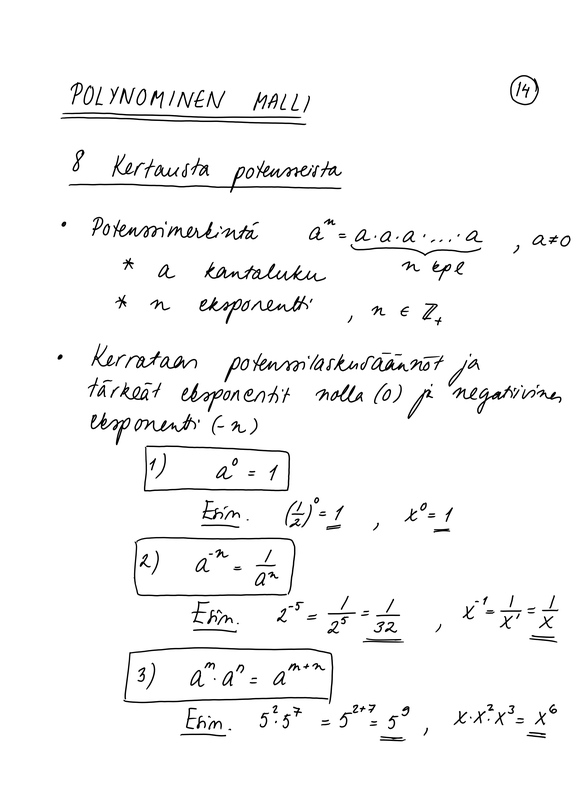 POLYNOMINEN MALLI
14
8 Kertausta potensseista
• Potenssimerkintä aⁿ = a·a·a·...·a , a≠0
n kpl
* a kantaluku
* n eksponentti , n ∈ ℤ₊
• Kerrataan potenssilaskusäännöt ja
tärkeät eksponentit nolla (0) ja negatiivinen
eksponentti (-n)
1) a⁰ = 1
Esim. (1/2)⁰ = 1 , x⁰ = 1
2) a⁻ⁿ = 1/aⁿ
Esim. 2⁻⁵ = 1/2⁵ = 1/32 , x⁻¹ = 1/x¹ = 1/x
3) aᵐ·aⁿ = aᵐ⁺ⁿ
Esim. 5²·5⁷ = 5²⁺⁷ = 5⁹ , x·x²·x³ = x⁶